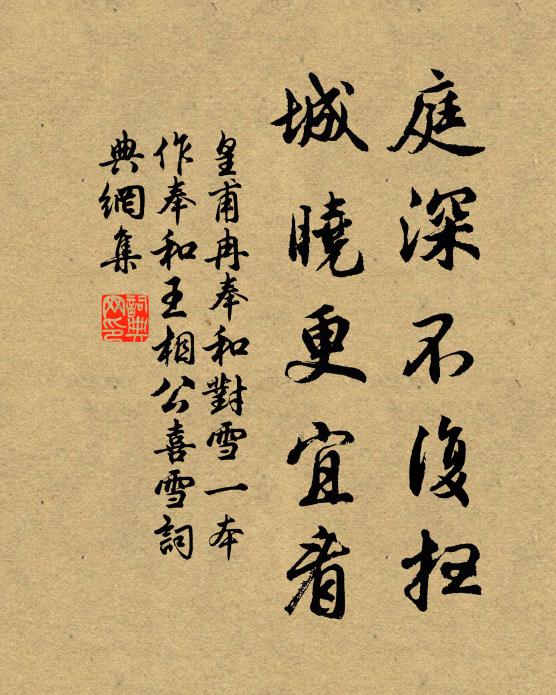 庭深不復掃
城曉更宜看
皇甫冉奉和對雪一本
作奉和王相公喜雪詞
典網集
詞典
网印